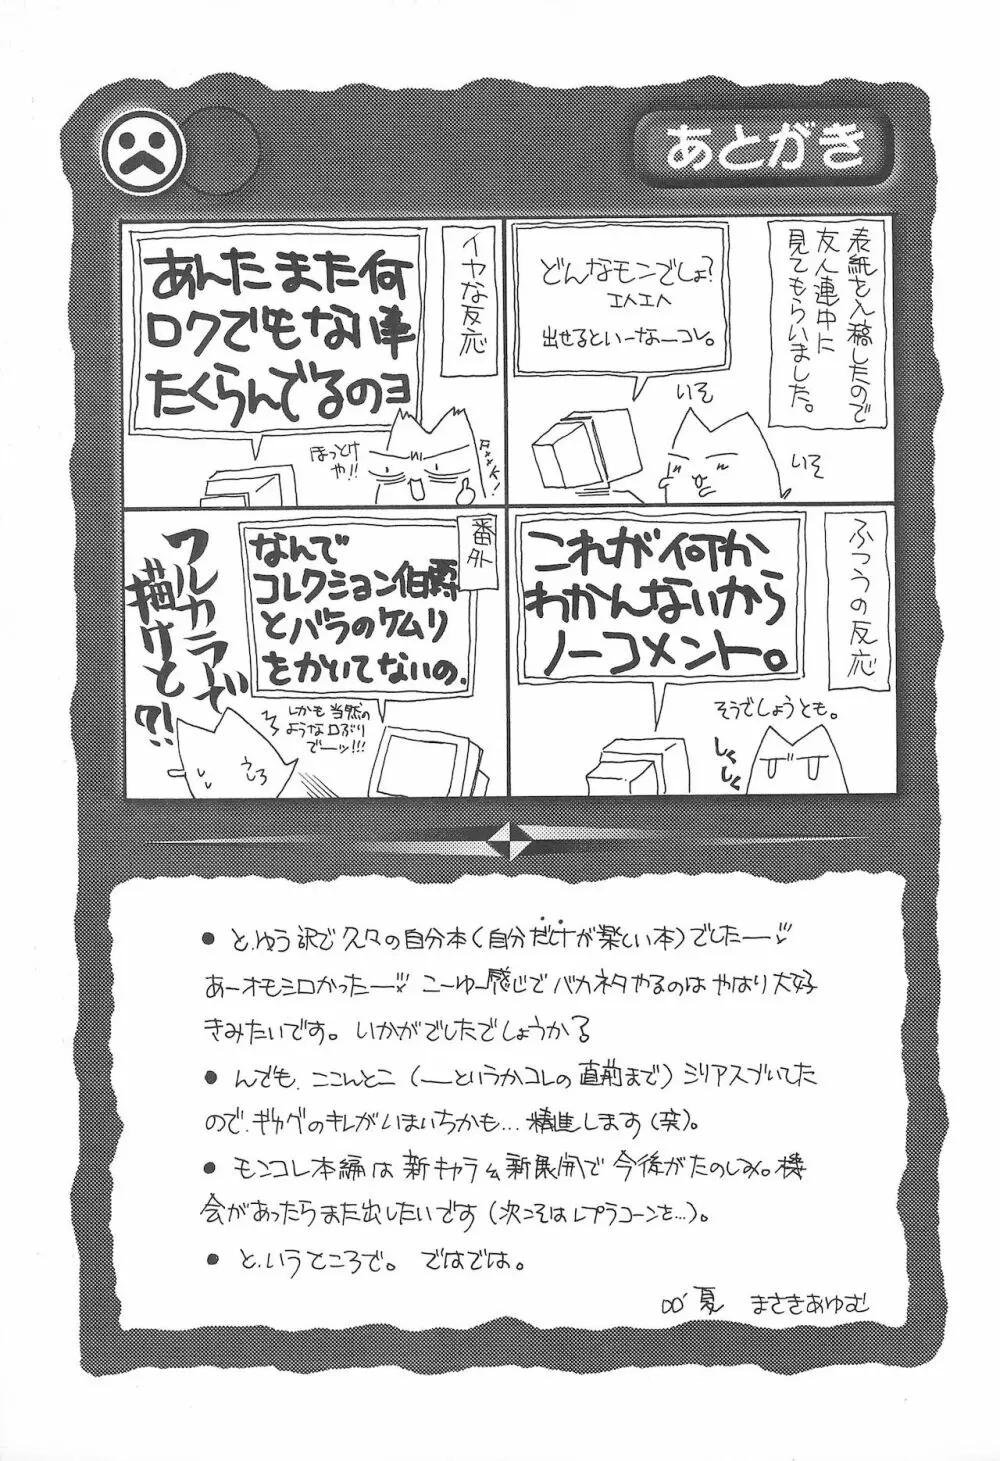 あとがき
表紙を入稿したので
友人連中に
見てもらいました。
どんなモンでしょ?
エヘエヘ
出せるといーなーコレ。
いそ
いそ
イヤな反応
あんたまた何
ロクでもない事
たくらんでるのヨ
ほっとけ
や!!
ふつうの反応
これが何か
わかんないから
ノーコメント。
そうでしょうとも。
しくしく
番外
なんで
コレクション伯爵
とバラのケムリ
をかいてないの.
しかも当然の
ような口ぶり
でーッ!!!
フルカラーで
描けと?!
● と.ゆう訳で久々の自分本(自分だけが楽しい本)でしたー♡
あーオモシロかったー♡ こーゆー感じでバカネタやるのはやはり大好
きみたいです。いかがでしたでしょうか?
● んでも、ここんとこ(ーというかコレの直前まで)シリアスづいてした
ので、ギャグのキレがいまいちかも…精進します(笑)。
● モンコレ本編は新キャラ&新展開で今後がたのしみ。機
会があったらまた出したいです(次こそはレプラコーンを…)。
● と.いうところで。ではでは。
00'夏 まさきあゆむ